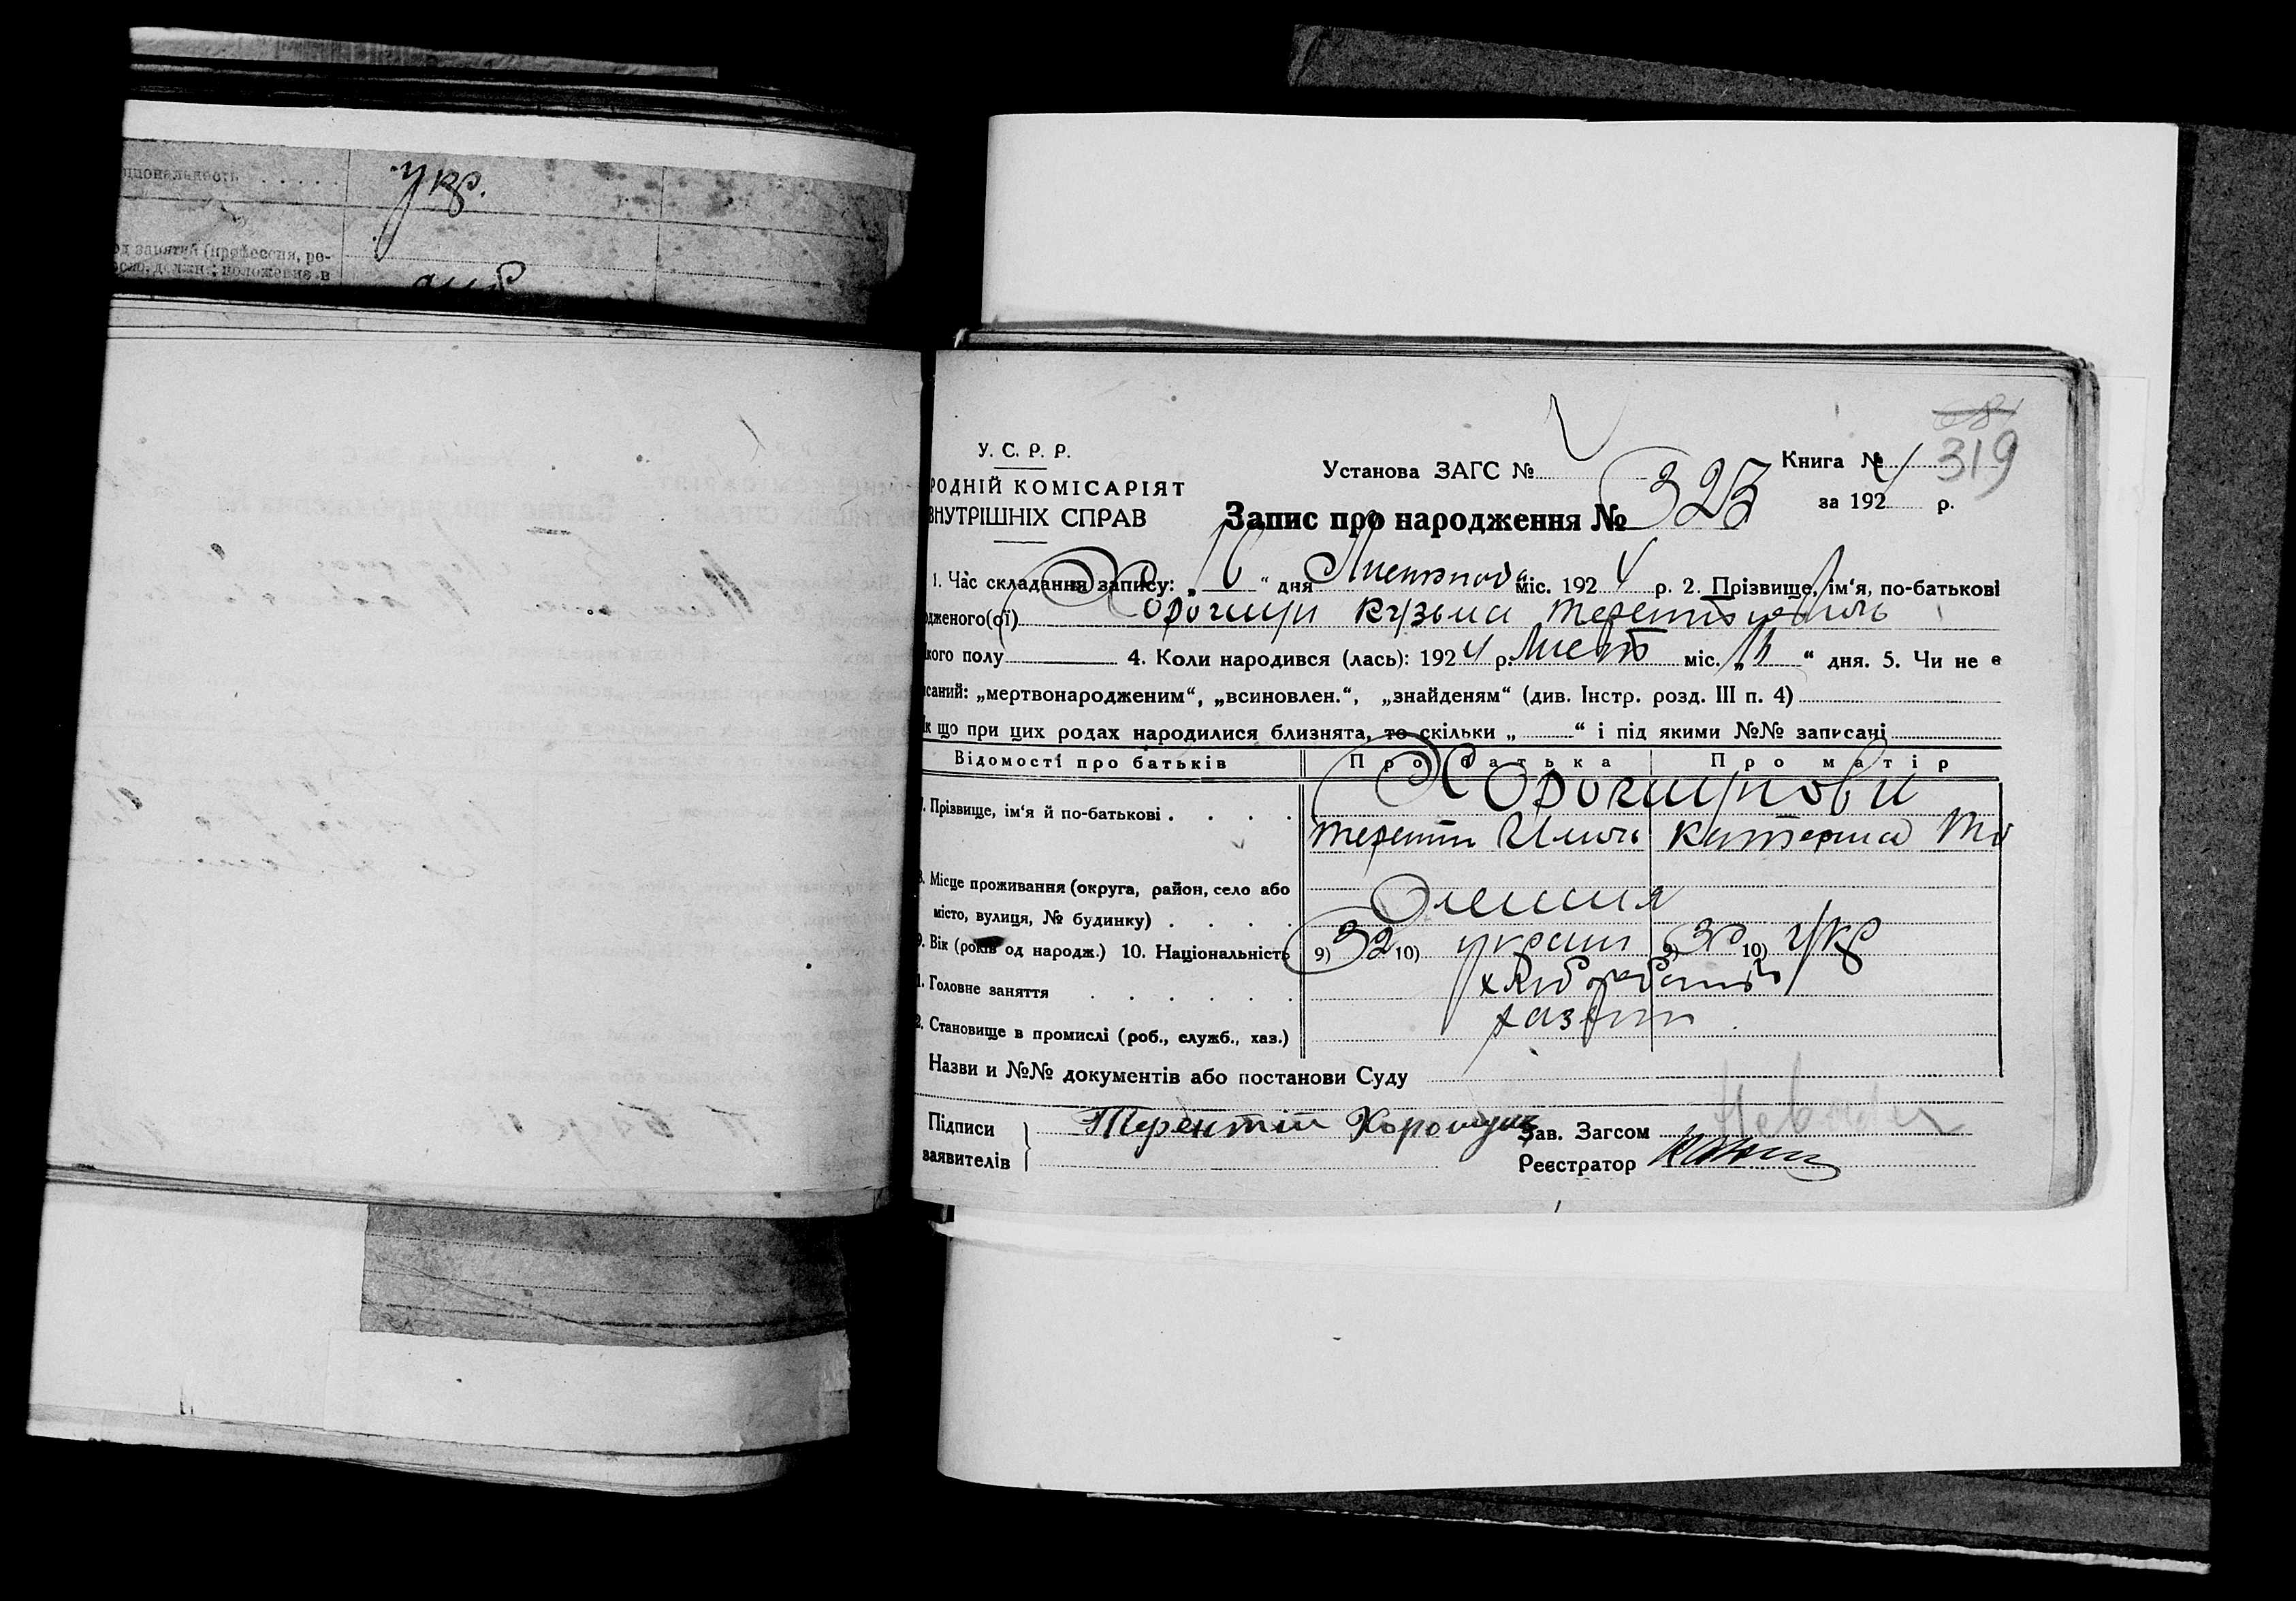 ціональность . . . . .
укр.
од занятий (профессия, ре-
положение в
68
319
У. С. Р. Р.
РОДНІЙ КОМІСАРІЯТ
ВНУТРІШНІХ СПРАВ
Установа ЗАГС №
Книга №
за 1924 р.
Запис про народження № 323
1. Час складання запису: „ “ дня Листопада міс. 1924 р. 2. Прізвище, ім‘я, по-батькові
дженого(ої) Хорошун Кузьма Терентієвичь
кого полу 4. Коли народився (лась): 1924 р. Лист міс. „ “ дня. 5. Чи не є
саний: „мертвонародженим“, „всиновлен.“, „знайденям“ (див. Інстр. розд. III п. 4)
к що при цих родах народилися близнята, то скільки „ “ і під якими №№ записані
Відомості про батьків Про батька Про матір
Хорошунови
7. Прізвище, ім‘я й по-батькові . . . .
Терентій Ілічь Катерина
8. Місце проживання (округа, район, село або
місто, вулиця, № будинку) . . . .
9. Вік (років од народж.) 10. Національність 9) 32 10) україн 9) 30 10) укр
11. Головне заняття . . . . . . хліборобство
12. Становище в промислі (роб., служб., хаз.) хазяїн
Назви и №№ документів або постанови Суду
Підписи
заявителів
Терентій Хорошун
Зав. Загсом
Реєстратор